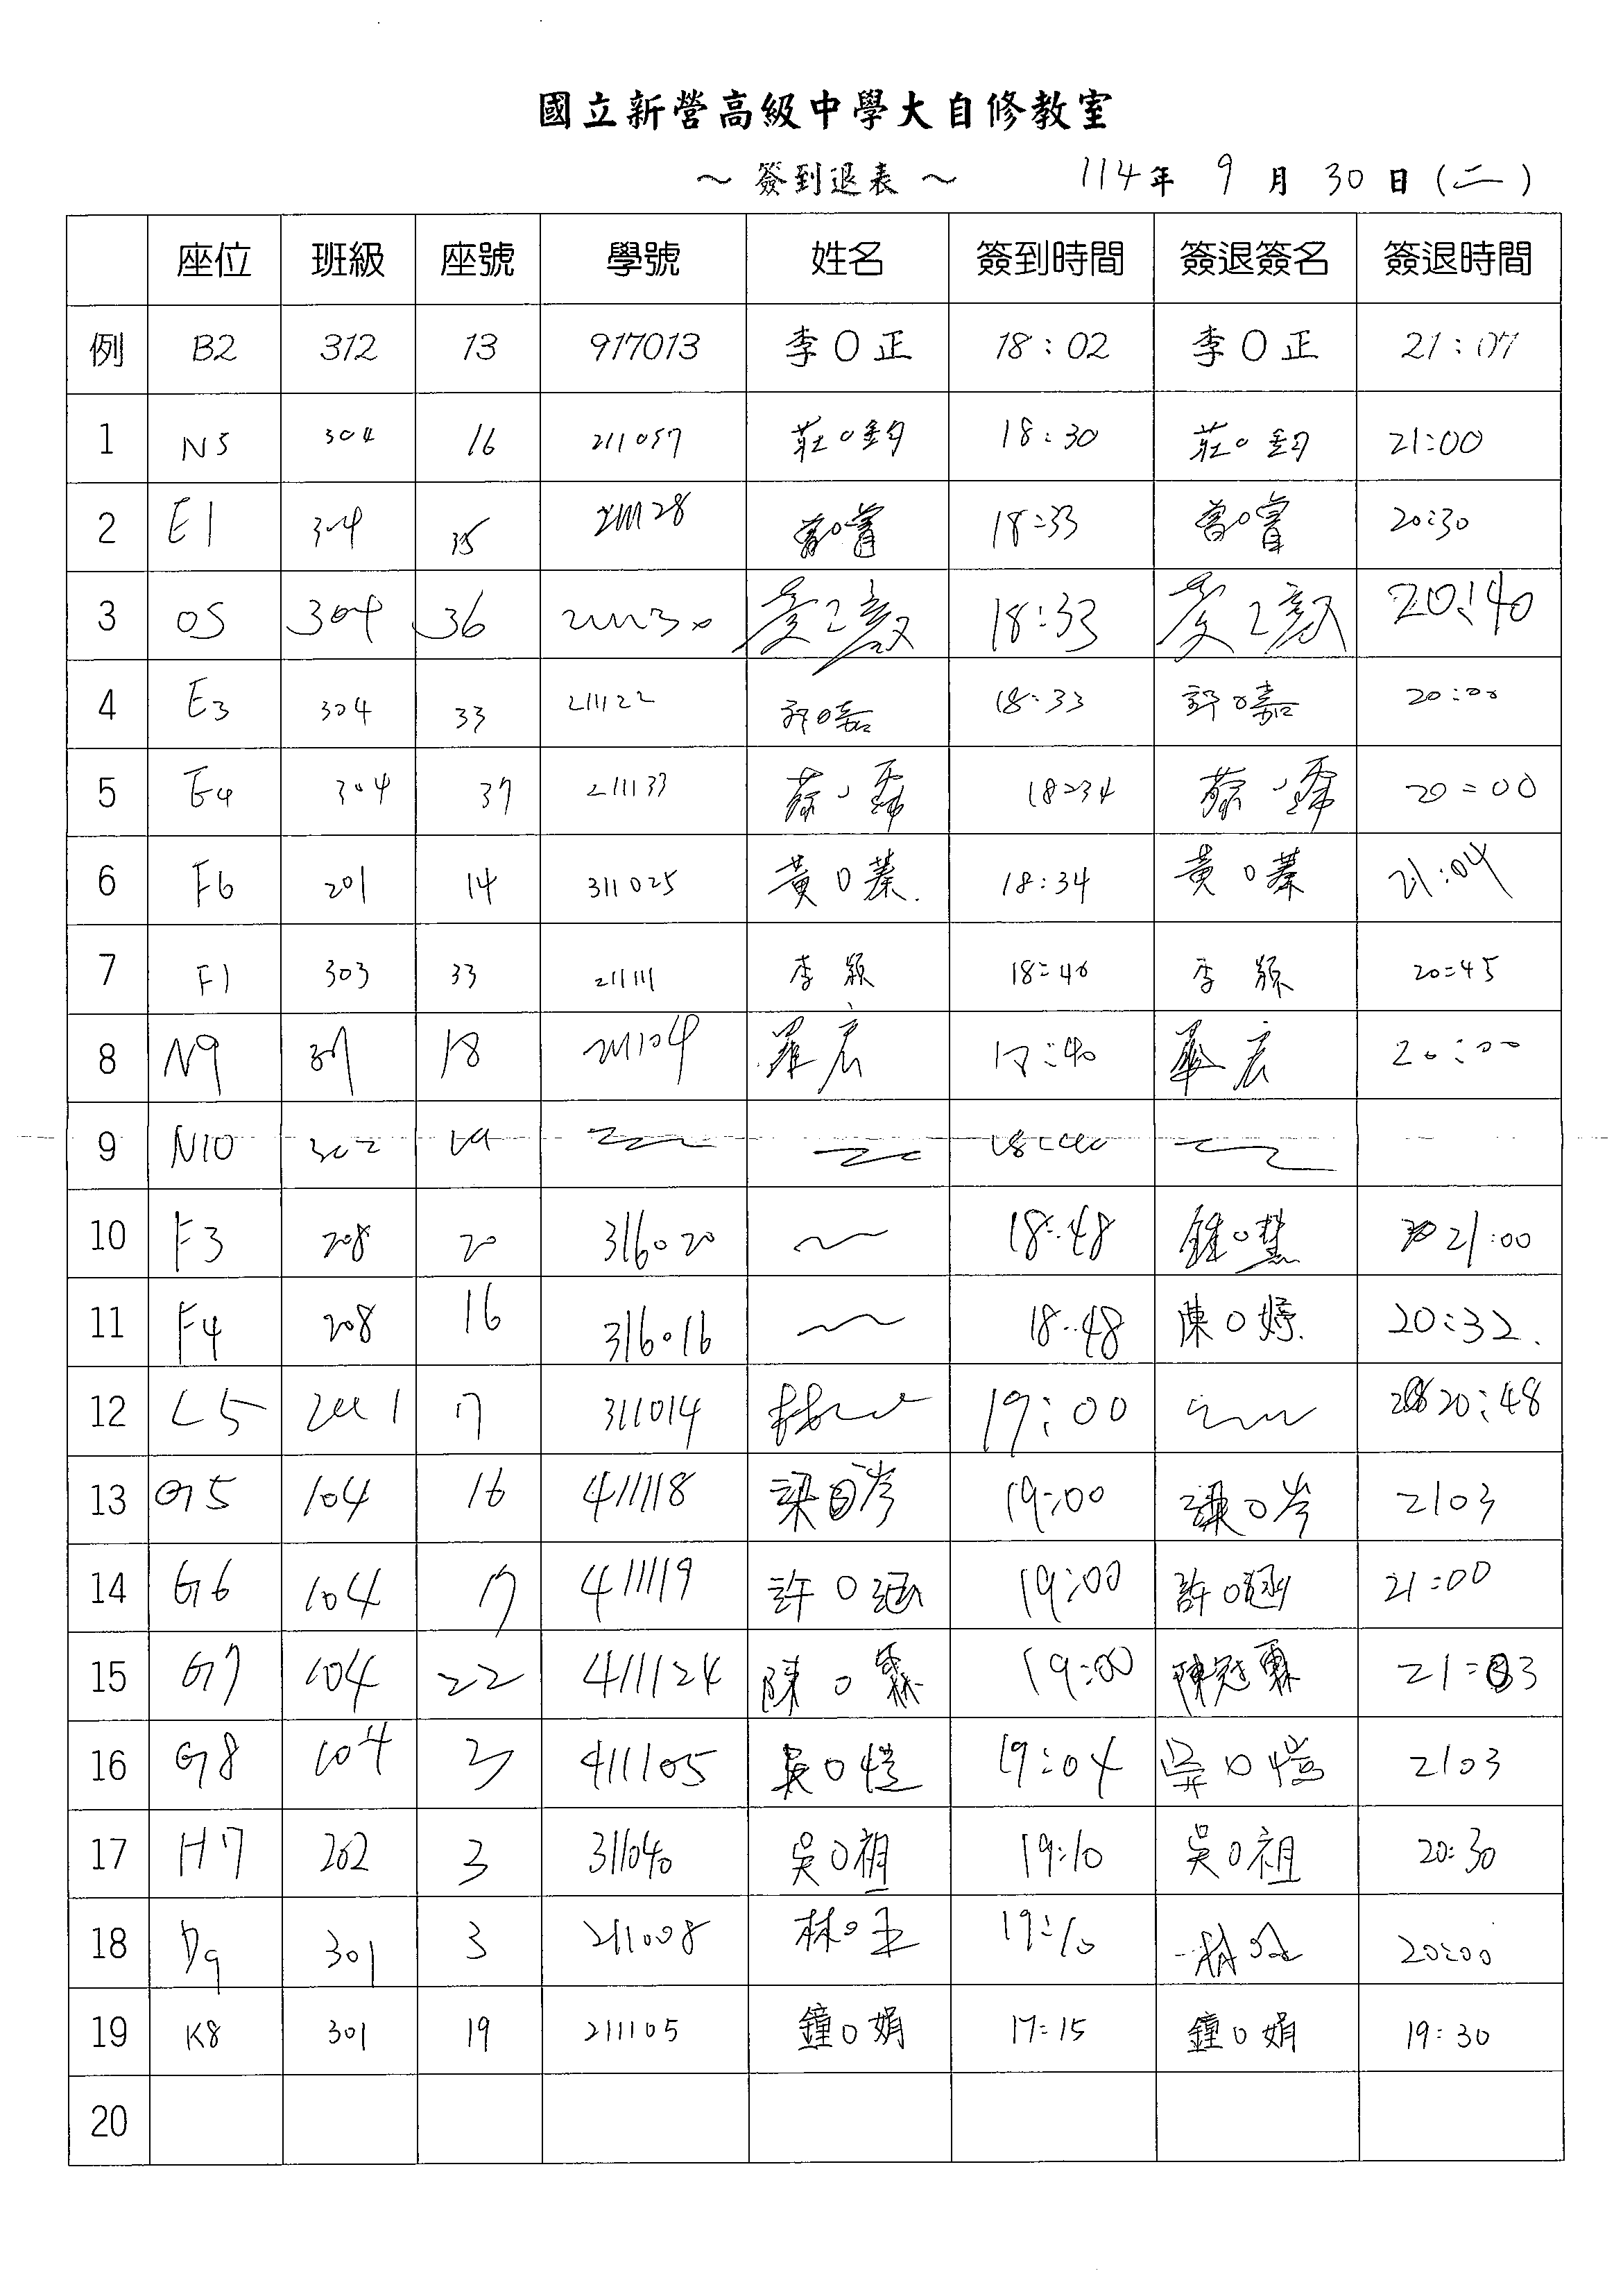 國立新營高級中學大自修教室
～ 簽到退表 ～ 114年 9 月 30 日(二)
座位 班級 座號 學號 姓名 簽到時間 簽退簽名 簽退時間
例 B2 312 13 917013 李O正 18:02 李O正 21:07
1 N5 304 16 211057 莊O鈞 18:30 莊O鈞 21:00
2 E1 304 35 211128 18:33 20:30
3 O5 304 36 211130 18:33 20:40
4 E3 304 33 211122 許O嘉 18:33 許O嘉 20:00
5 E4 304 37 211133 蔡 18:34 蔡 20:00
6 F6 201 14 311025 黃O蓁 18:34 黃O蓁 21:04
7 F1 303 33 211111 李 穎 18:40 李 穎 20:45
8 N9 18 211104 羅 宏 20:00
9 N10 302 19 18:40
10 F3 208 20 316020 18:48 鍾O慧 21:00
11 F4 208 16 316016 18:48 陳O婷 20:32
12 L5 201 17 311014 19:00 20:48
13 G5 104 16 411118 梁O岑 19:00 梁O岑 2103
14 G6 104 17 411119 許O涵 19:00 許O涵 21:00
15 G7 104 22 411124 陳O霖 19:00 陳冠霖 21:03
16 G8 104 3 411105 吳O愷 19:04 吳O愷 2103
17 H7 202 3 311040 吳O祖 19:10 吳O祖 20:30
18 D9 301 3 211008 林O 19:10 林O 20:00
19 K8 301 19 211105 鐘O娟 17:15 鐘O娟 19:30
20